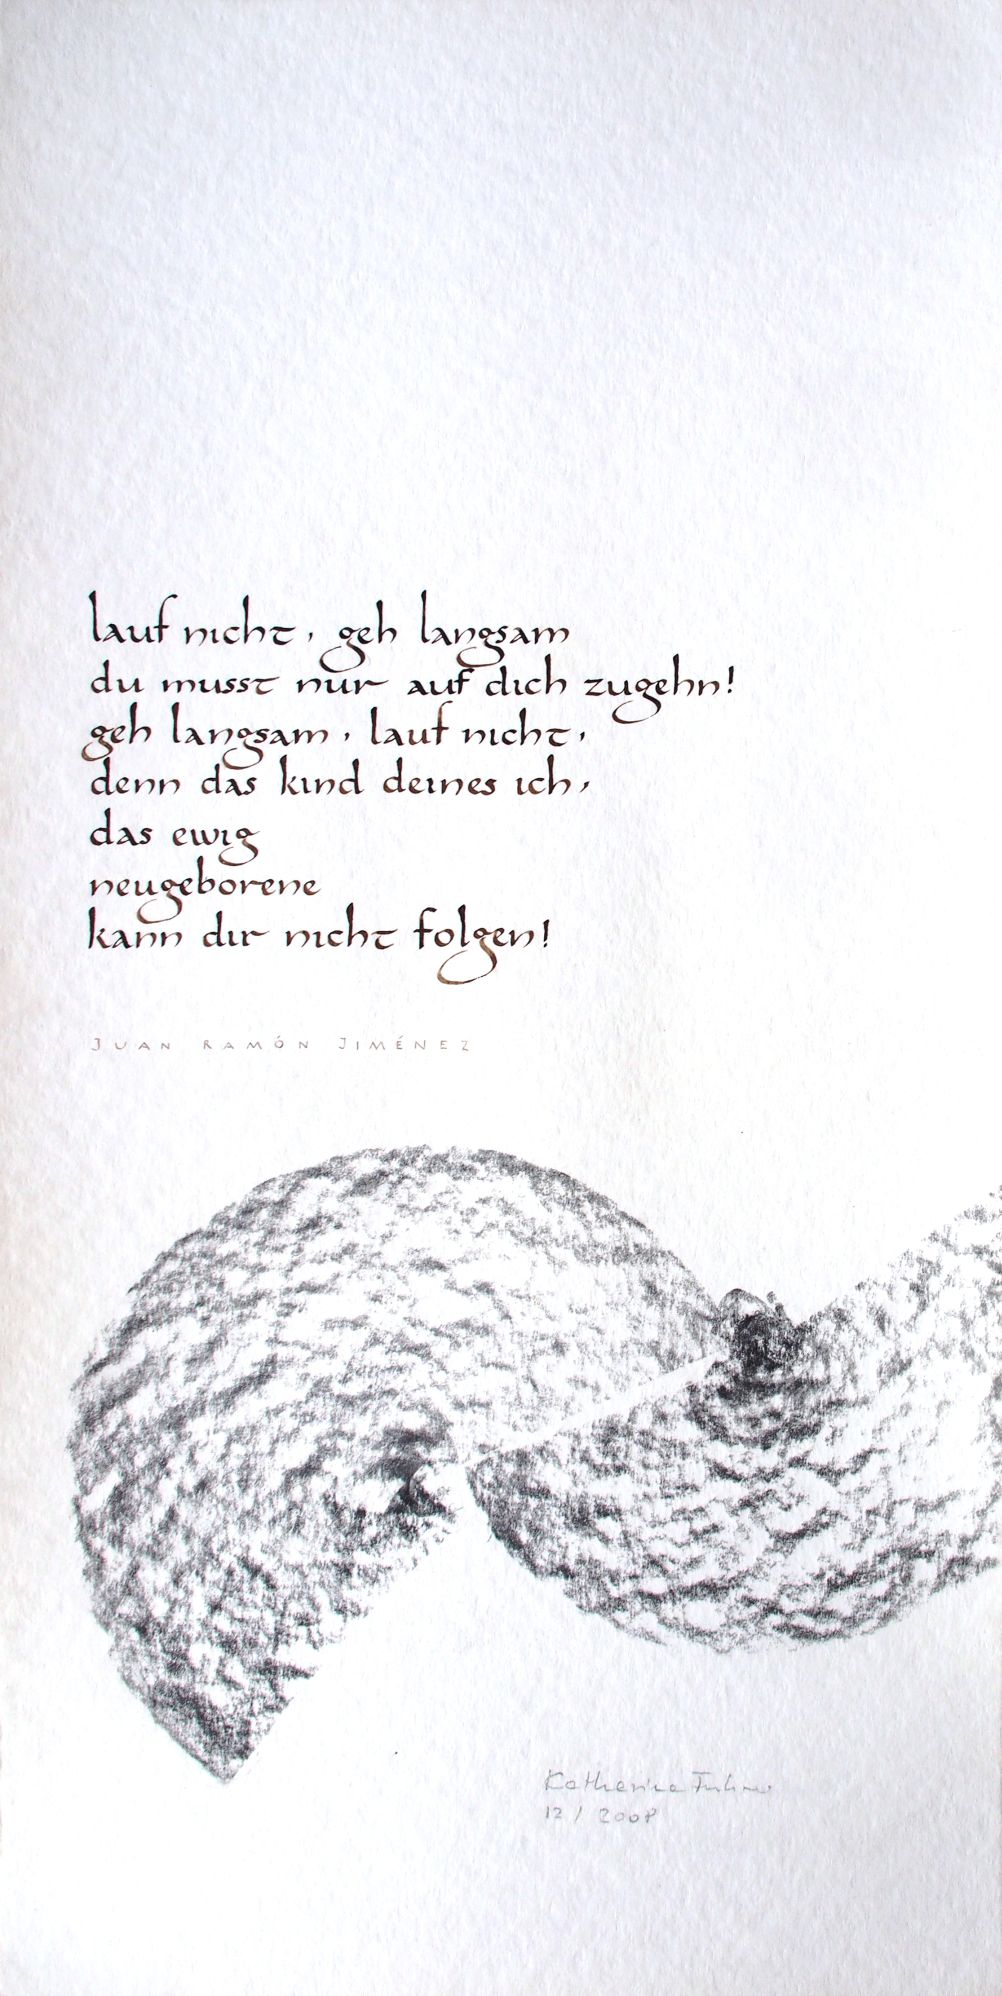 lauf nicht, geh langsam
du musst nur auf dich zugehn!
geh langsam, lauf nicht,
denn das kind deines ich,
das ewig
neugeborene
kann dir nicht folgen!
JUAN RAMÓN JIMÉNEZ
Katharina
12/2008